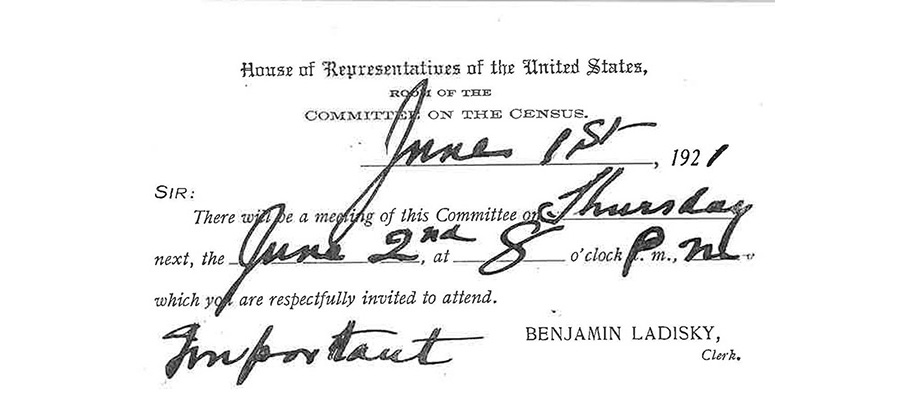 House of Representatives of the United States,
ROOM OF THE
COMMITTEE ON THE CENSUS.
June 1st, 1921
SIR:
There will be a meeting of this Committee on Thursday
next, the June 2nd, at 8 o'clock P. m., M
which you are respectfully invited to attend.
Important
BENJAMIN LADISKY,
Clerk.